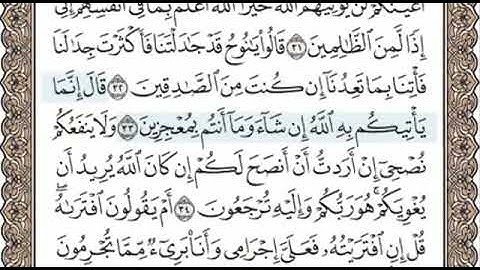 أَعْيُنُكُمْ لَن يُؤْتِيَهُمُ ٱللَّهُ خَيْرًا ٱللَّهُ أَعْلَمُ بِمَا فِىٓ أَنفُسِهِمْ إِنِّىٓ
إِذًا لَّمِنَ ٱلظَّٰلِمِينَ ٣١ قَالُوا۟ يَٰنُوحُ قَدْ جَٰدَلْتَنَا فَأَكْثَرْتَ جِدَٰلَنَا
فَأْتِنَا بِمَا تَعِدُنَآ إِن كُنتَ مِنَ ٱلصَّٰدِقِينَ ٣٢ قَالَ إِنَّمَا
يَأْتِيكُم بِهِ ٱللَّهُ إِن شَآءَ وَمَآ أَنتُم بِمُعْجِزِينَ ٣٣ وَلَا يَنفَعُكُمْ
نُصْحِىٓ إِنْ أَرَدتُّ أَنْ أَنصَحَ لَكُمْ إِن كَانَ ٱللَّهُ يُرِيدُ أَن
يُغْوِيَكُمْ هُوَ رَبُّكُمْ وَإِلَيْهِ تُرْجَعُونَ ٣٤ أَمْ يَقُولُونَ ٱفْتَرَىٰهُ
قُلْ إِنِ ٱفْتَرَيْتُهُۥ فَعَلَىَّ إِجْرَامِى وَأَنَا۠ بَرِىٓءٌ مِّمَّا تُجْرِمُونَ